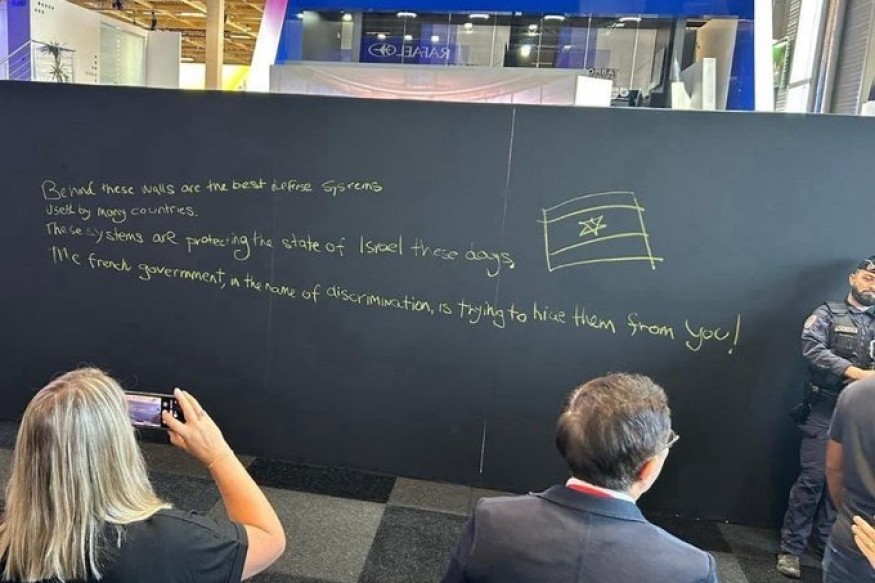 RAFAEL
Behind these walls are the best defense systems
used by many countries.
These systems are protecting the state of Israel these days,
The french government, in the name of discrimination, is trying to hide them from you!